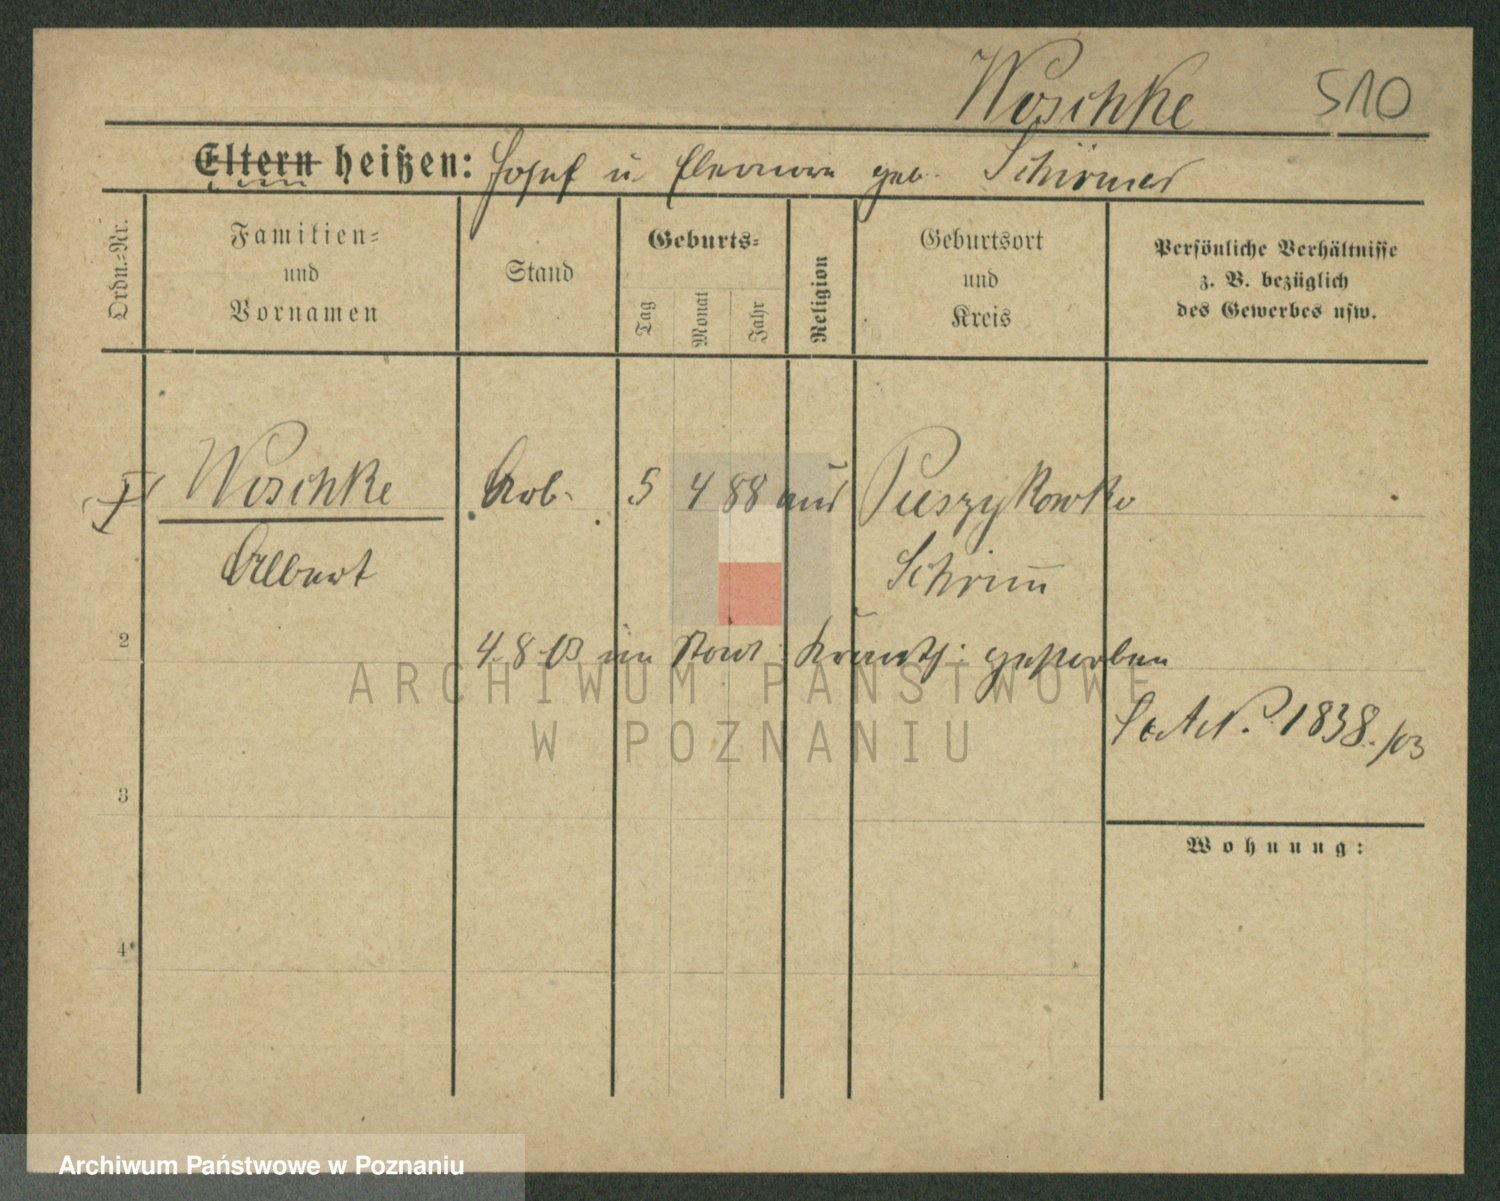 Woschke 510
Eltern heißen: Josef u Eleonore geb. Schirmer
Ordn.-Nr.
Familien-
und
Vornamen
Stand
Geburts-
Tag
Monat
Jahr
Religion
Geburtsort
und
Kreis
Persönliche Verhältnisse
z. B. bezüglich
des Gewerbes usw.
Woschke Arb. 5 4 88 aus Puszykowko
Albert Schrim̅
2
4. 8 03 im Stadt Krankh: gestorben
1838./03
3
Wohnung:
4
ARCHIWUM PAŃSTWOWE
W POZNANIU
Archiwum Państwowe w Poznaniu